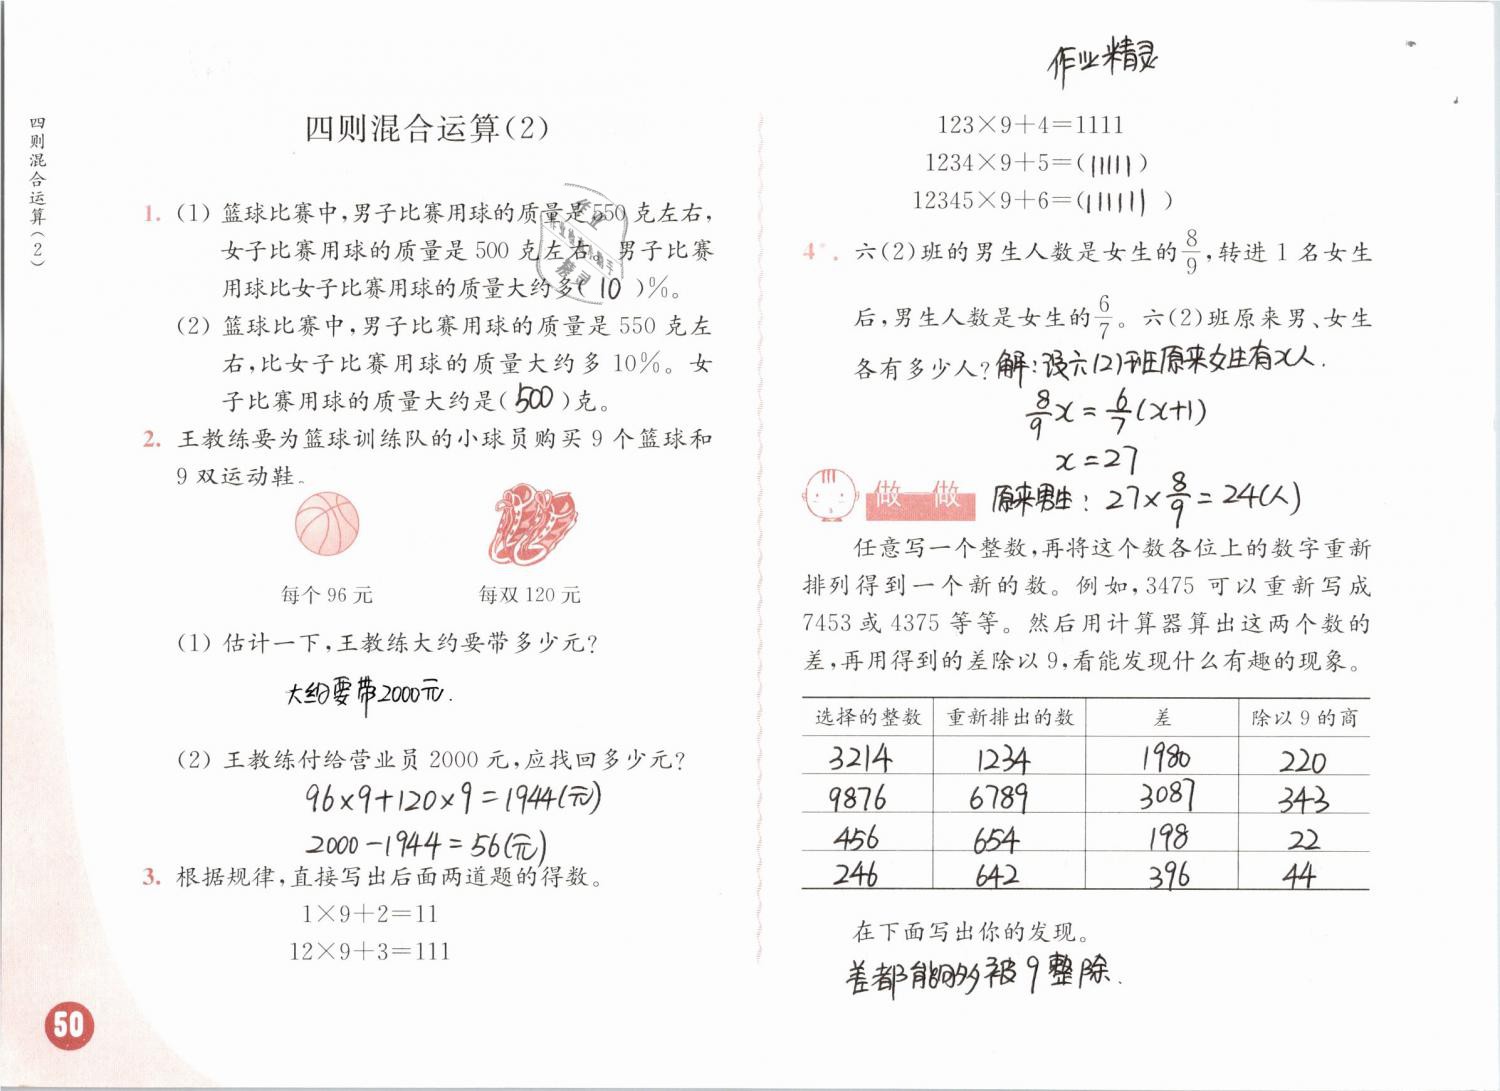 四则混合运算(2)
四则混合运算(2)
1. (1) 篮球比赛中,男子比赛用球的质量是 550 克左右,
女子比赛用球的质量是 500 克左右。男子比赛
用球比女子比赛用球的质量大约多( 10 )%。
(2) 篮球比赛中,男子比赛用球的质量是 550 克左
右,比女子比赛用球的质量大约多 10%。女
子比赛用球的质量大约是( 500 )克。
2. 王教练要为篮球训练队的小球员购买 9 个篮球和
9 双运动鞋。
每个 96 元
每双 120 元
(1) 估计一下,王教练大约要带多少元?
大约要带2000元.
(2) 王教练付给营业员 2000 元,应找回多少元?
96×9+120×9=1944(元)
2000-1944=56(元)
3. 根据规律,直接写出后面两道题的得数。
1×9+2=11
12×9+3=111
50
作业精灵
123×9+4=1111
1234×9+5=(11111)
12345×9+6=(111111)
4*. 六(2)班的男生人数是女生的 8/9,转进 1 名女生
后,男生人数是女生的 6/7。六(2)班原来男、女生
各有多少人? 解:设六(2)班原来女生有x人.
8/9x=6/7(x+1)
x=27
做一做 原来男生:27×8/9=24(人)
任意写一个整数,再将这个数各位上的数字重新
排列得到一个新的数。例如,3475 可以重新写成
7453 或 4375 等等。然后用计算器算出这两个数的
差,再用得到的差除以 9,看能发现什么有趣的现象。
选择的整数 重新排出的数 差 除以 9 的商
3214 1234 1980 220
9876 6789 3087 343
456 654 198 22
246 642 396 44
在下面写出你的发现。
差都能够被9整除.